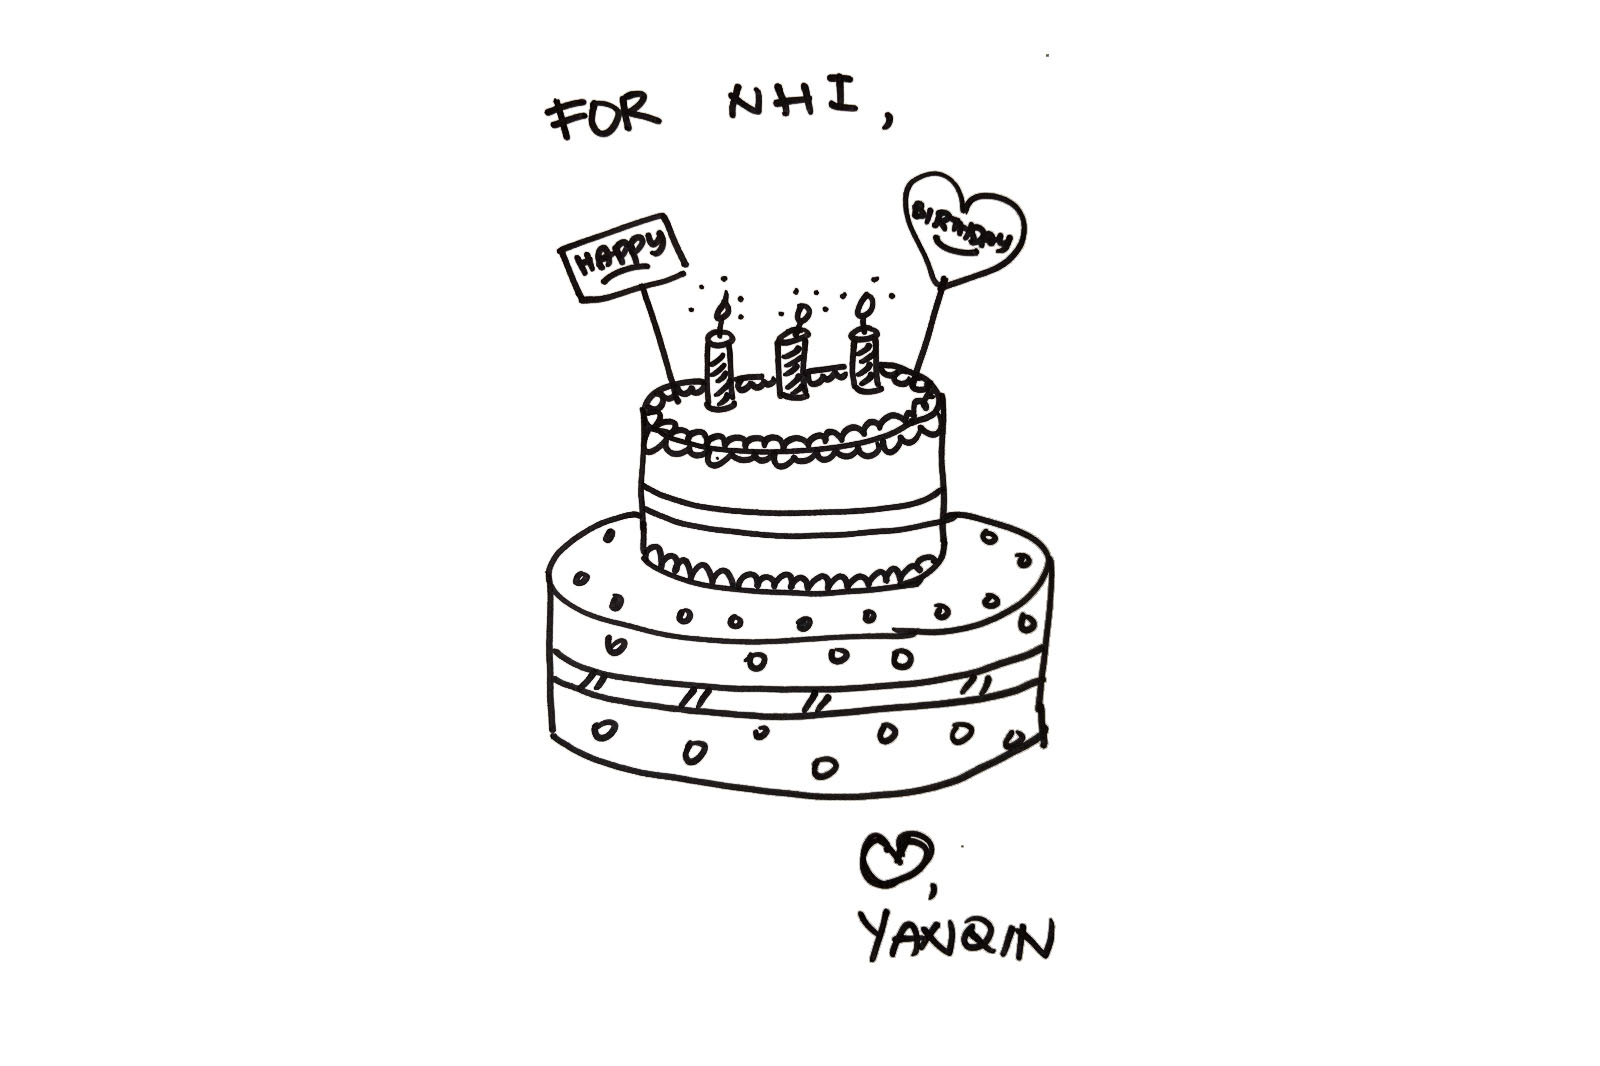 FOR NHI,
HAPPY
BIRTHDAY
♡,
YANQIN